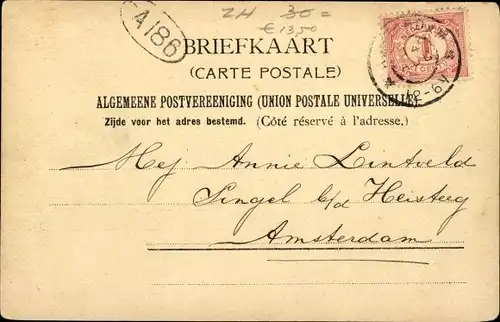 ZH 30 =
€ 13,50
A186
BRIEFKAART
(CARTE POSTALE)
ALGEMEENE POSTVEREENIGING (UNION POSTALE UNIVERSELLE)
Zijde voor het adres bestemd. (Côté réservé à l'adresse.)
Mej Annie Lintveld
Singel b/d Heisteeg
Amsterdam